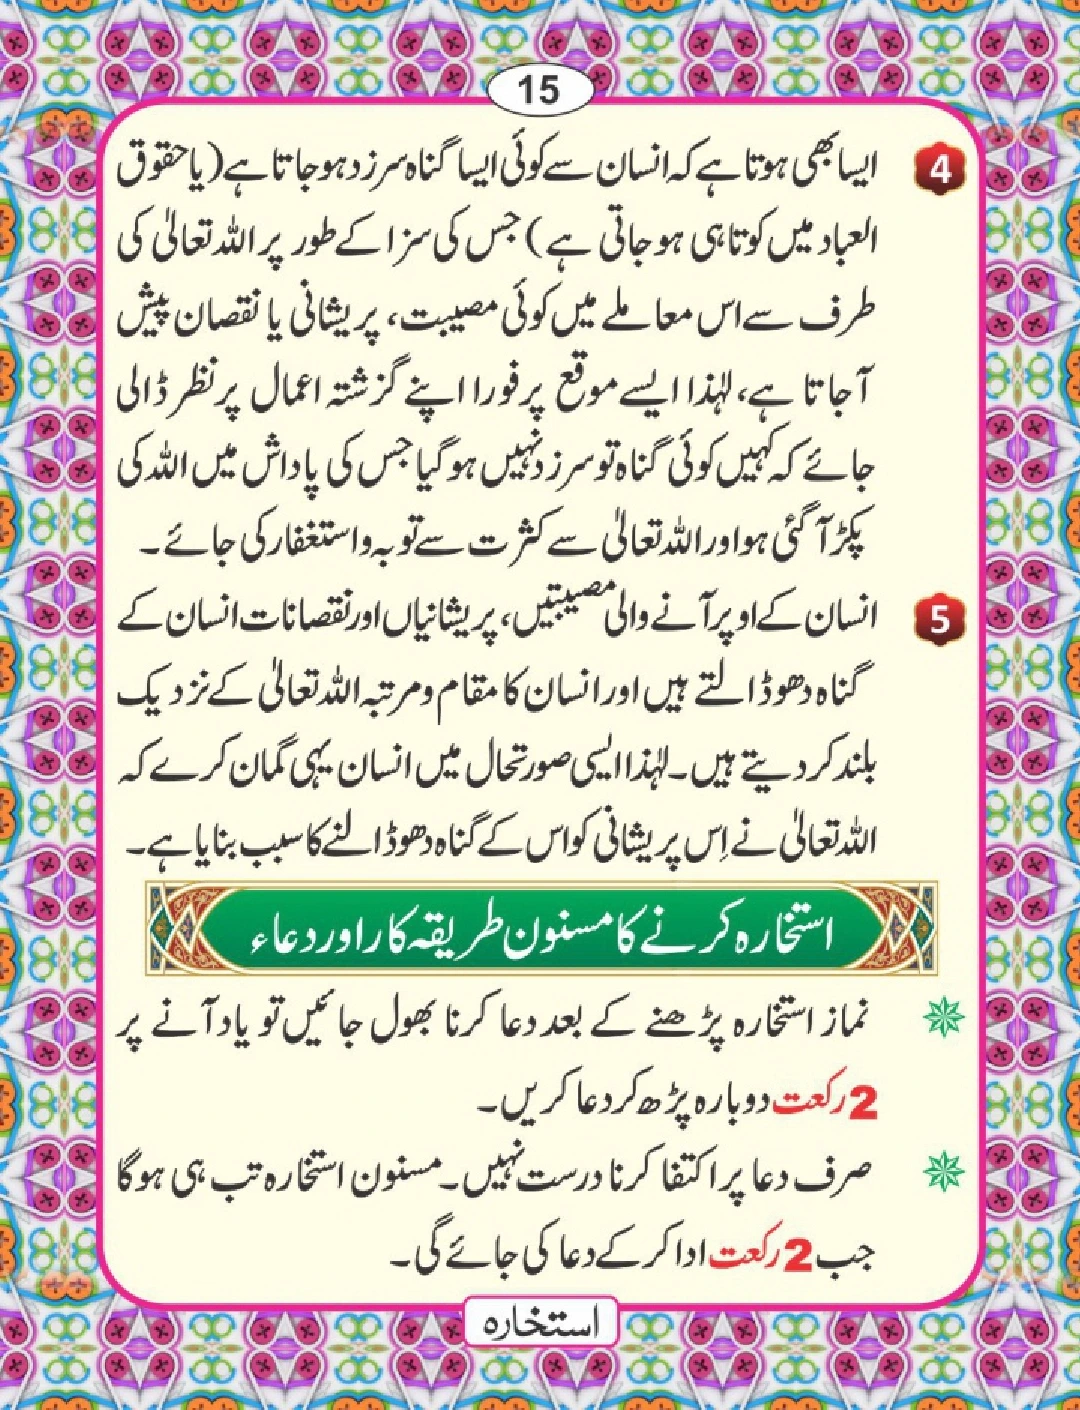 15
4 ایسا بھی ہوتا ہے کہ انسان سے کوئی ایسا گناہ سرزد ہو جاتا ہے (یا حقوق
العباد میں کوتاہی ہو جاتی ہے) جس کی سزا کے طور پر اللہ تعالیٰ کی
طرف سے اس معاملے میں کوئی مصیبت، پریشانی یا نقصان پیش
آجاتا ہے، لہٰذا ایسے موقع پر فورا اپنے گزشتہ اعمال پر نظر ڈالی
جائے کہ کہیں کوئی گناہ تو سرزد نہیں ہو گیا جس کی پاداش میں اللہ کی
پکڑ آگئی ہو اور اللہ تعالیٰ سے کثرت سے توبہ و استغفار کی جائے۔
5 انسان کے اوپر آنے والی مصیبتیں، پریشانیاں اور نقصانات انسان کے
گناہ دھو ڈالتے ہیں اور انسان کا مقام و مرتبہ اللہ تعالیٰ کے نزدیک
بلند کر دیتے ہیں۔ لہٰذا ایسی صورتحال میں انسان یہی گمان کرے کہ
اللہ تعالیٰ نے اِس پریشانی کو اس کے گناہ دھو ڈالنے کا سبب بنایا ہے۔
استخارہ کرنے کا مسنون طریقہ کار اور دعاء
نماز استخارہ پڑھنے کے بعد دعا کرنا بھول جائیں تو یاد آنے پر
2 رکعت دوبارہ پڑھ کر دعا کریں۔
صرف دعا پر اکتفا کرنا درست نہیں۔ مسنون استخارہ تب ہی ہوگا
جب 2 رکعت ادا کر کے دعا کی جائے گی۔
استخارہ